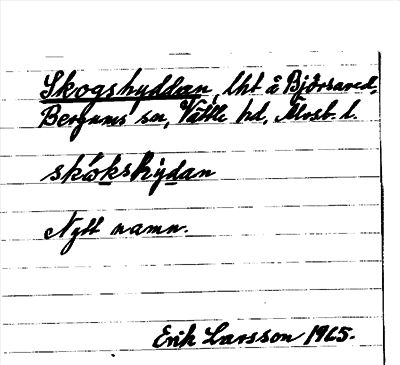 Skogshyddan, lht å Björsared,
Bergums sn, Vättle hd, Älvsb. l.
skωkshy̍dan
Nytt namn.
Erik Larsson 1965.